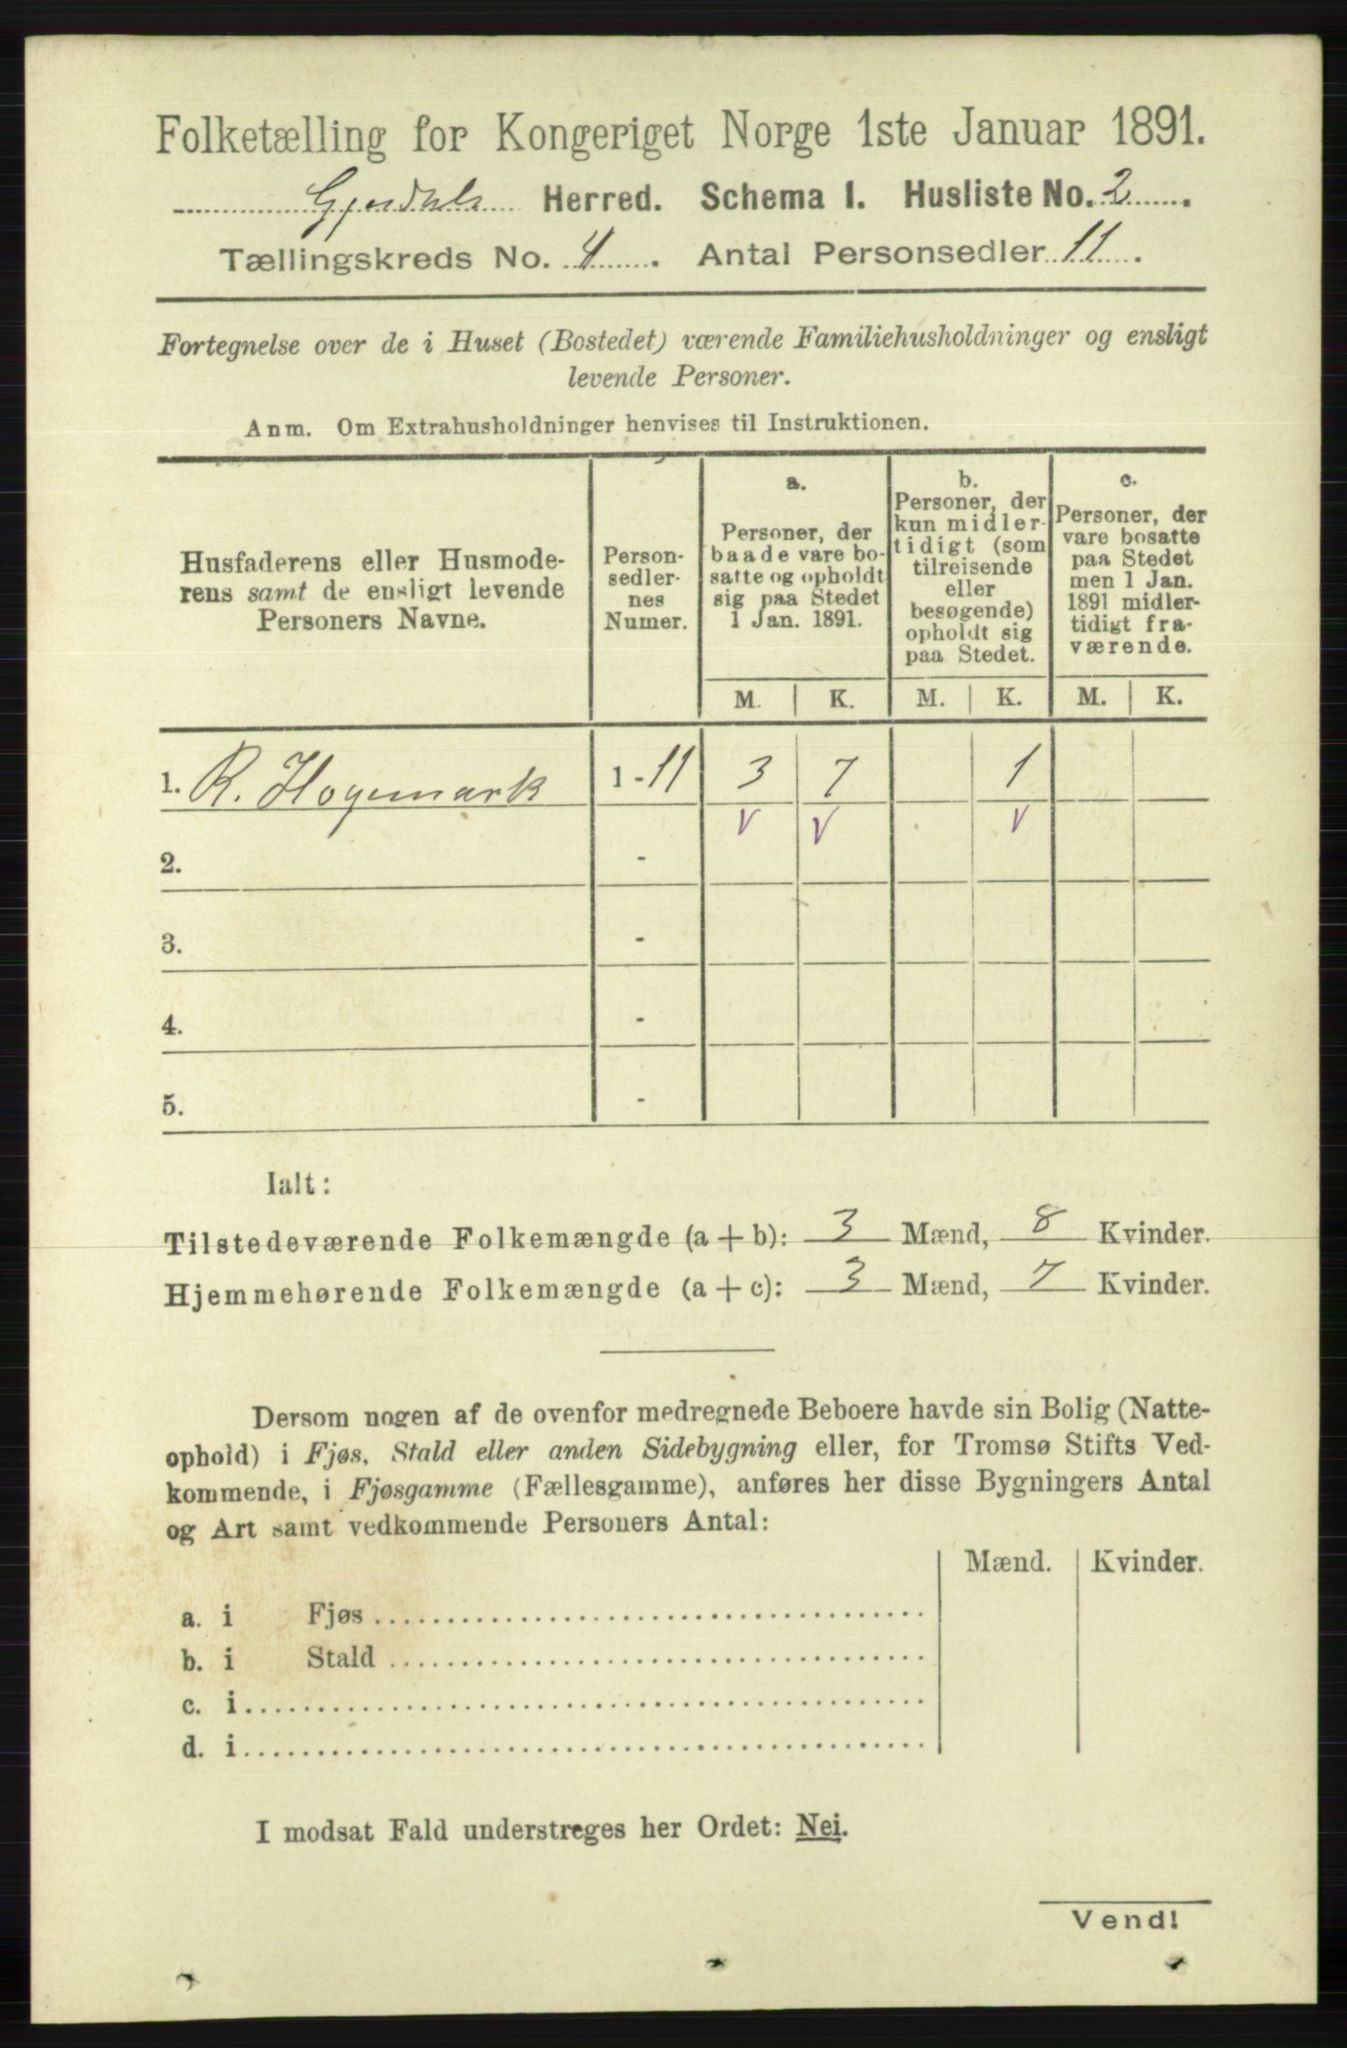 Folketælling for Kongeriget Norge 1ste Januar 1891.
Gjesdals Herred. Schema I. Husliste No. 2.
Tællingskreds No. 4. Antal Personsedler 11.
Fortegnelse over de i Huset (Bostedet) værende Familiehusholdninger og ensligt
levende Personer.
Anm. Om Extrahusholdninger henvises til Instruktionen.
Husfaderens eller Husmode-
rens samt de ensligt levende
Personers Navne.
Person-
sedler-
nes
Numer.
a.
Personer, der
baade vare bo-
satte og opholdt
sig paa Stedet
1 Jan. 1891.
b.
Personer, der
kun midler-
tidigt (som
tilreisende
eller
besøgende)
opholdt sig
paa Stedet.
c.
Personer, der
vare bosatte
paa Stedet
men 1 Jan.
1891 midler-
tidigt fra-
værende.
M. K. M. K. M. K.
1. R. Hogemark 1 - 11 3 7 1
2. -
3. -
4. -
5. -
Ialt:
Tilstedeværende Folkemængde (a + b): 3 Mænd, 8 Kvinder.
Hjemmehørende Folkemængde (a + c): 3 Mænd, 7 Kvinder.
Dersom nogen af de ovenfor medregnede Beboere havde sin Bolig (Natte-
ophold) i Fjøs, Stald eller anden Sidebygning eller, for Tromsø Stifts Ved-
kommende, i Fjøsgamme (Fællesgamme), anføres her disse Bygningers Antal
og Art samt vedkommende Personers Antal:
Mænd. Kvinder.
a. i Fjøs
b. i Stald
c. i
d. i
I modsat Fald understreges her Ordet: Nei.
Vend!